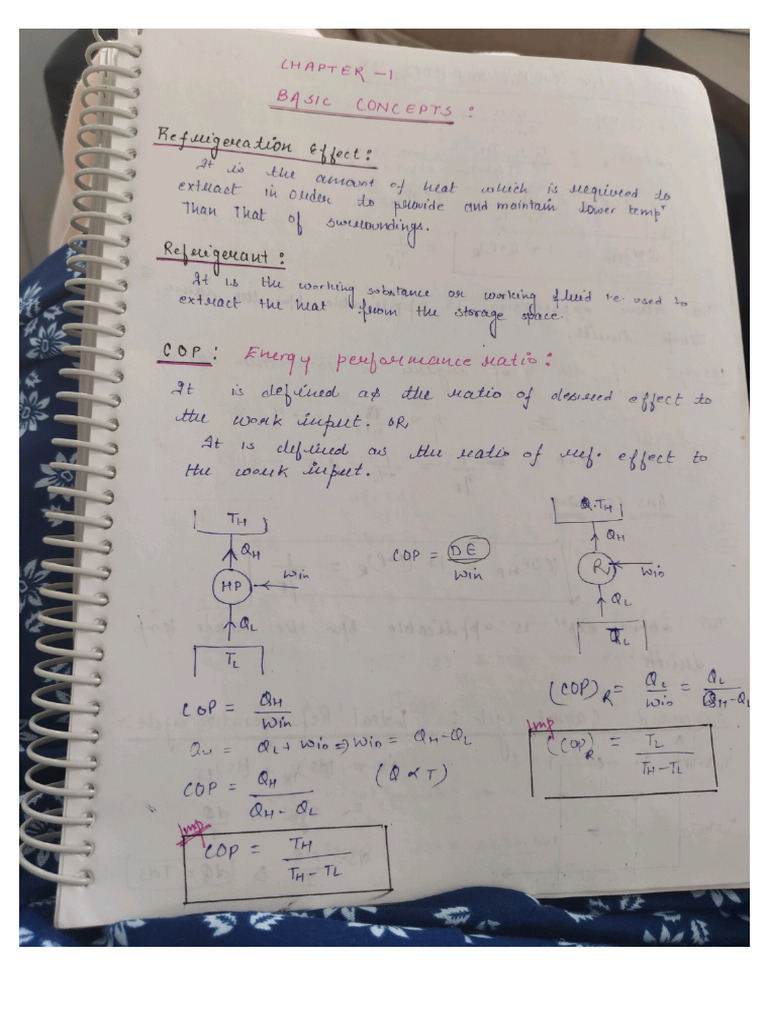 CHAPTER - 1
BASIC CONCEPTS :
Refrigeration Effect :
It is the amount of heat which is required to
extract in order to provide and maintain lower tempr
Than That of surroundings.
Refrigerant :
It is the working substance or working fluid i.e. used to
extract the heat from the storage space.
COP : Energy performance ratio :
It is defined as the ratio of desired effect to
the work input. OR,
It is defined as the ratio of ref. effect to
the work input.
TH
QH
HP
Win
QL
TL
COP = DE / Win
TH
QH
R
Win
QL
TL
COP = QH / Win
QH = QL + Win => Win = QH - QL
COP = QH / QH - QL (Q ∝ T)
Imp
COP = TH / TH - TL
(COP)R = QL / Win = QL / QH - QL
Imp
(COP)R = TL / TH - TL